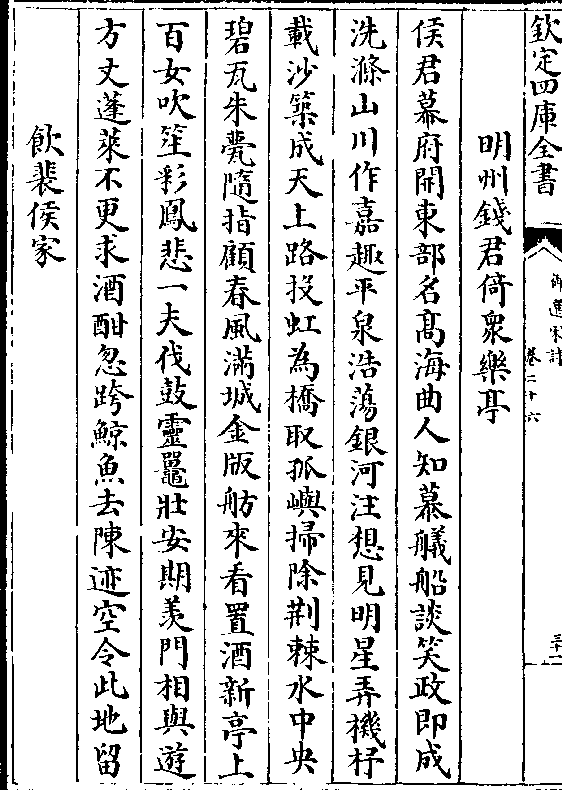 欽定四庫全書
御選宋詩 卷二十六
明州錢君倚衆樂亭
侯君幕府開東部名髙海曲人知慕艤船談笑政即成
洗滌山川作嘉趣平泉浩蕩銀河注想見明星弄機杼
載沙築成天上路投虹為橋取孤嶼掃除荆棘水中央
碧瓦朱甍隨指顧春風滿城金版舫來看置酒新亭上
百女吹笙彩鳳悲一夫伐鼓靈鼉壯安期羡門相與遊
方丈蓬萊不更求酒酣忽跨鯨魚去陳迹空令此地留
飲裴侯家